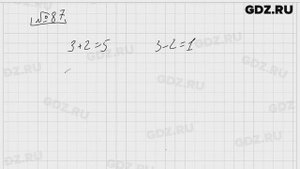 GDZ.RU
№87.
3+2=5 3-2=1